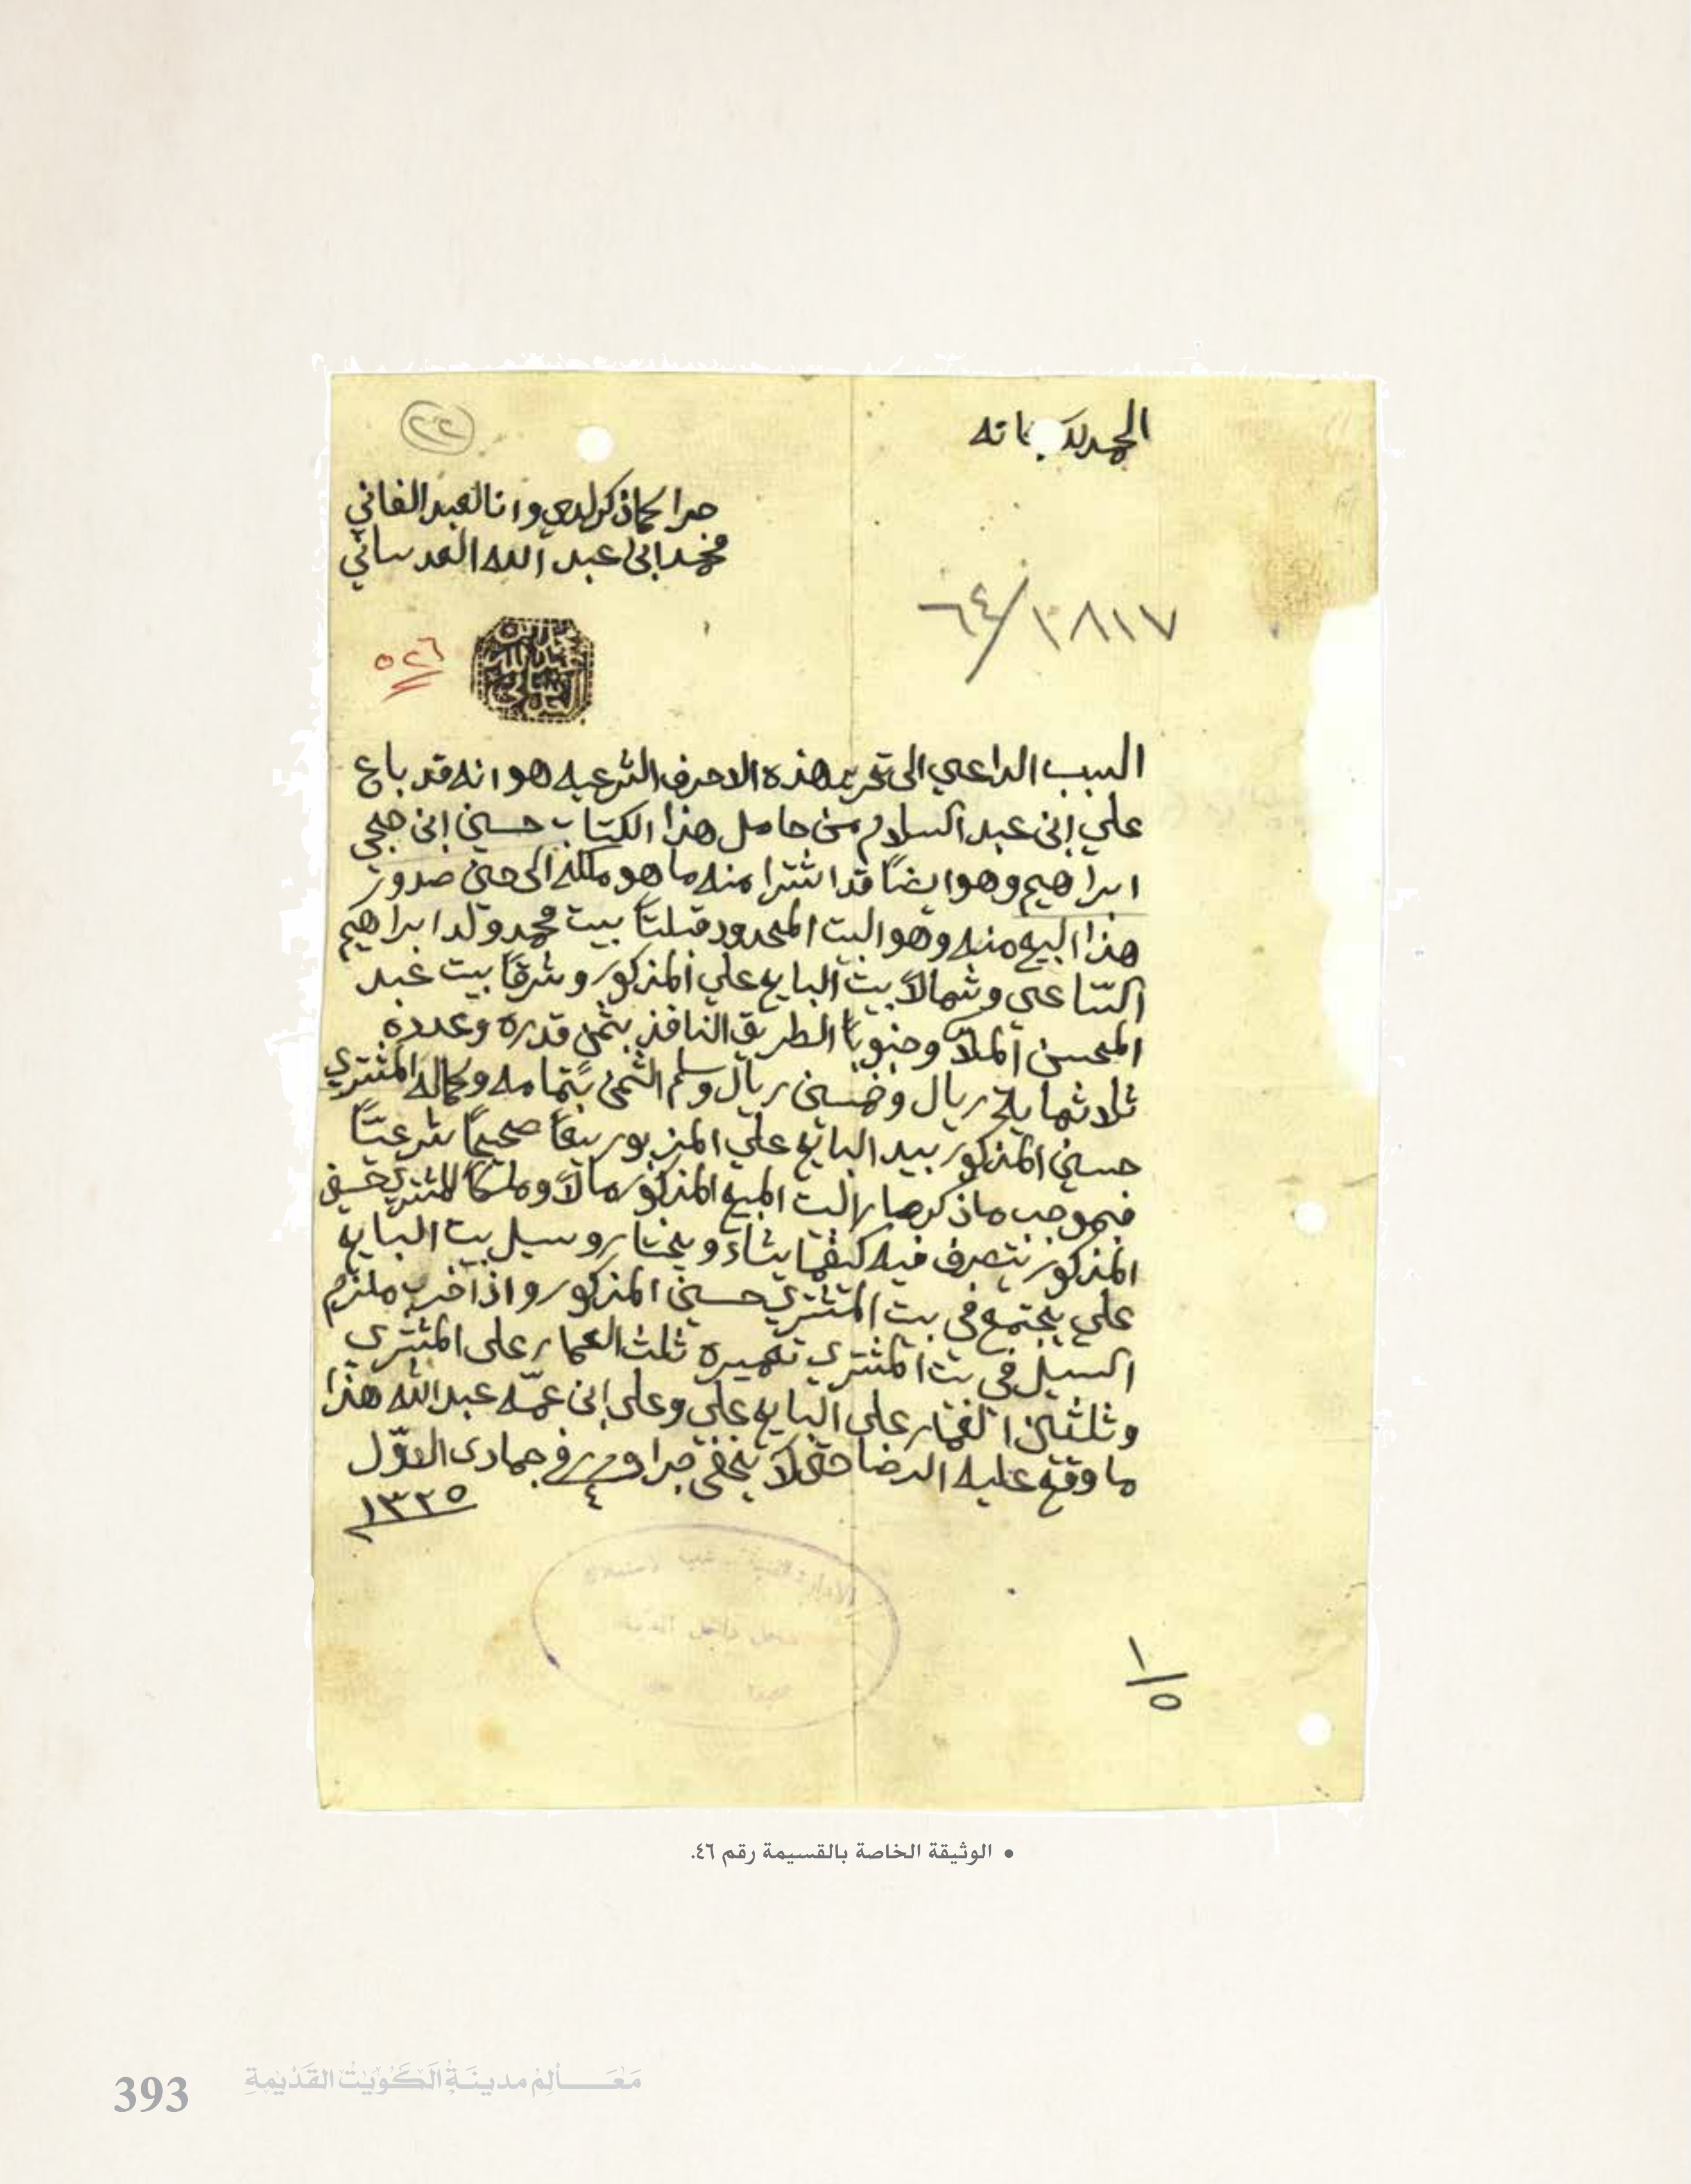 الحمد لله سبحانه
٢٢
جرا كما ذكر لدي وانا العبد الفاني
محمد ابن عبد الله العدساني
١٠٨١٧/٦٤
٥٢٦
السبب الداعي الى تحرير هذه الاحرف الشرعيه هو انه قد باع
علي ابن عبد السلام من حامل هذا الكتاب حسين ابن حجي
ابراهيم وهو ايضاً قد اشترا منه ما هو ملكه الى حين صدور
هذا البيع منه وهو البيت المحدود قبلتاً بيت محمد ولد ابراهيم
السّاعي وشمالاً بيت البايع علي المذكور وشرقاً بيت عبد
المحسن الملاّ وجنوباً الطريق النافذ بثمن قدره وعدده
ثلاثماية ريال وخمسين ريال وسلم الثمن بتمامه وكماله المشتري
حسين المذكور بيد البايع علي المزبور بيعاً صحيحاً شرعيّاً
فبموجب ما ذكر صار البيت المبيع المذكور مالاً وملكاً للمشتري حسين
المذكور يتصرف فيه كيفما يشاء ويختار وسيل بيت البايع
علي يجتمع في بيت المشتري حسين المذكور واذا خرب ملزم
السيل في بيت المشتري تعميره ثلث العمار على المشتري
وثلثين العمار على البايع علي وعلى ابن عمّه عبد الله هذا
ما وقع عليه الرضا حتى لا يخفى جرا وحرر في ٤ جمادى الاوّل
١٣٢٥
١/٥
• الوثيقة الخاصة بالقسيمة رقم ٤٦.
393 مَعَالِمُ مدينَةِ الكُوَيْت القَدِيمَةِ